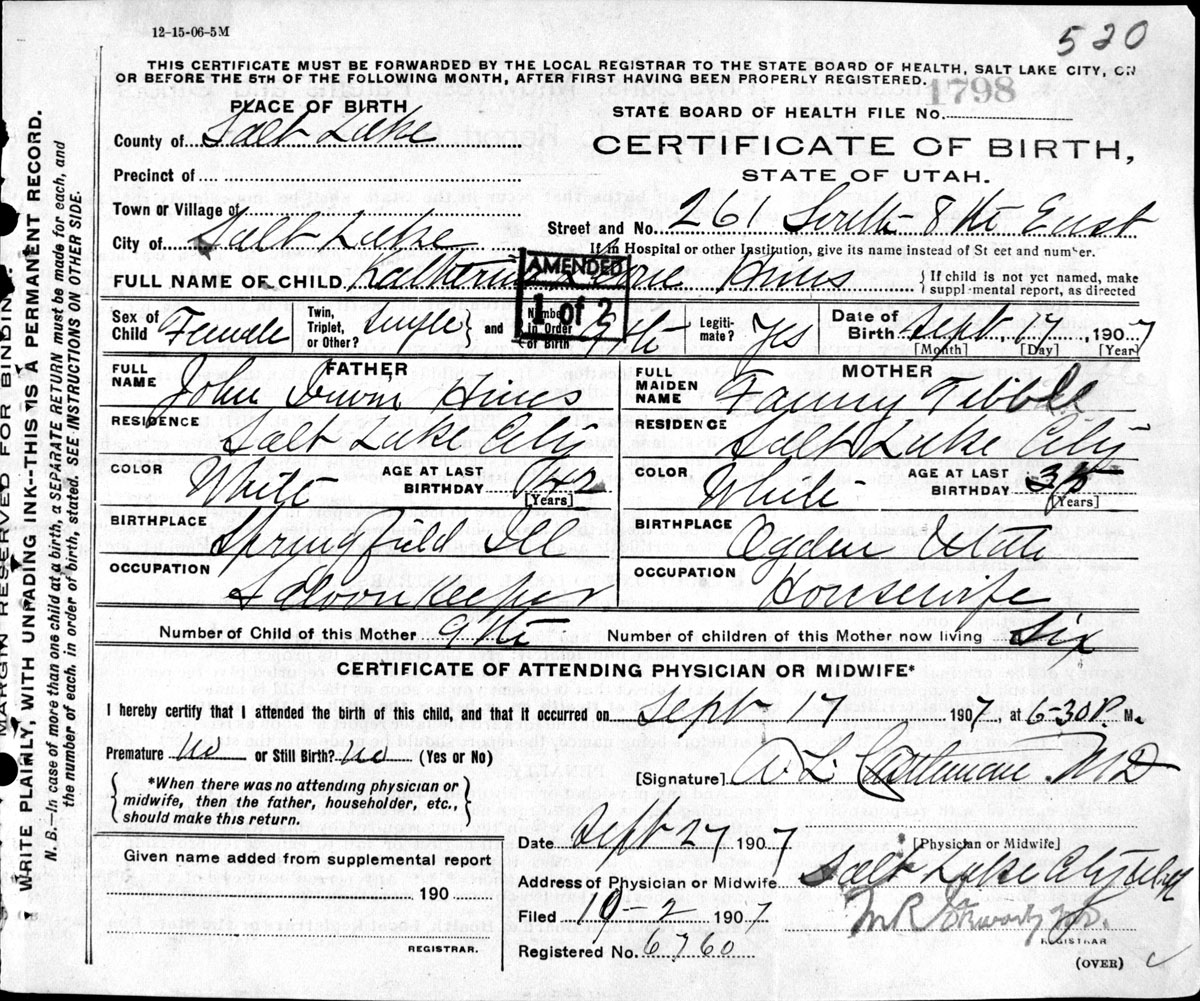 12-15-06-5M
520
THIS CERTIFICATE MUST BE FORWARDED BY THE LOCAL REGISTRAR TO THE STATE BOARD OF HEALTH, SALT LAKE CITY, ON
OR BEFORE THE 5TH OF THE FOLLOWING MONTH, AFTER FIRST HAVING BEEN PROPERLY REGISTERED.
PLACE OF BIRTH
STATE BOARD OF HEALTH FILE No. 1798
County of Salt Lake
CERTIFICATE OF BIRTH,
STATE OF UTAH.
Precinct of
Town or Village of
Street and No. 261 South 8th East
City of Salt Lake
If in Hospital or other Institution, give its name instead of St eet and number.
FULL NAME OF CHILD Katherine Hines
{ If child is not yet named, make
suppl-mental report, as directed
AMENDED
1 of 2
Sex of Child Female
Twin, Triplet, or Other? Single } and { Number in Order of Birth 9th
Legiti-mate? Yes
Date of Birth Sept, 17, 1907
[Month] [Day] [Year]
FATHER
FULL NAME John Hines
RESIDENCE Salt Lake City
COLOR White AGE AT LAST BIRTHDAY 42
[Years]
BIRTHPLACE Springfield Ill
OCCUPATION Saloon Keeper
MOTHER
FULL MAIDEN NAME Fanny Tibble
RESIDENCE Salt Lake City
COLOR White AGE AT LAST BIRTHDAY 35
[Years]
BIRTHPLACE Ogden Utah
OCCUPATION Housewife
Number of Child of this Mother 9th Number of children of this Mother now living Six
CERTIFICATE OF ATTENDING PHYSICIAN OR MIDWIFE*
I hereby certify that I attended the birth of this child, and that it occurred on Sept 17 1907, at 6-30 P. M.
Premature? No or Still Birth? No (Yes or No)
[Signature] M D
{ *When there was no attending physician or
midwife, then the father, householder, etc.,
should make this return. }
[Physician or Midwife]
Date Sept 27 1907
Given name added from supplemental report
190
REGISTRAR.
Address of Physician or Midwife Salt Lake City Utah
Filed 10-2 1907
Registered No. 6760
REGISTRAR
(OVER)
MARGIN RESERVED FOR BINDING.
WRITE PLAINLY, WITH UNFADING INK--THIS IS A PERMANENT RECORD.
N. B.—In case of more than one child at a birth, a SEPARATE RETURN must be made for each, and
the number of each, in order of birth, stated. SEE INSTRUCTIONS ON OTHER SIDE.